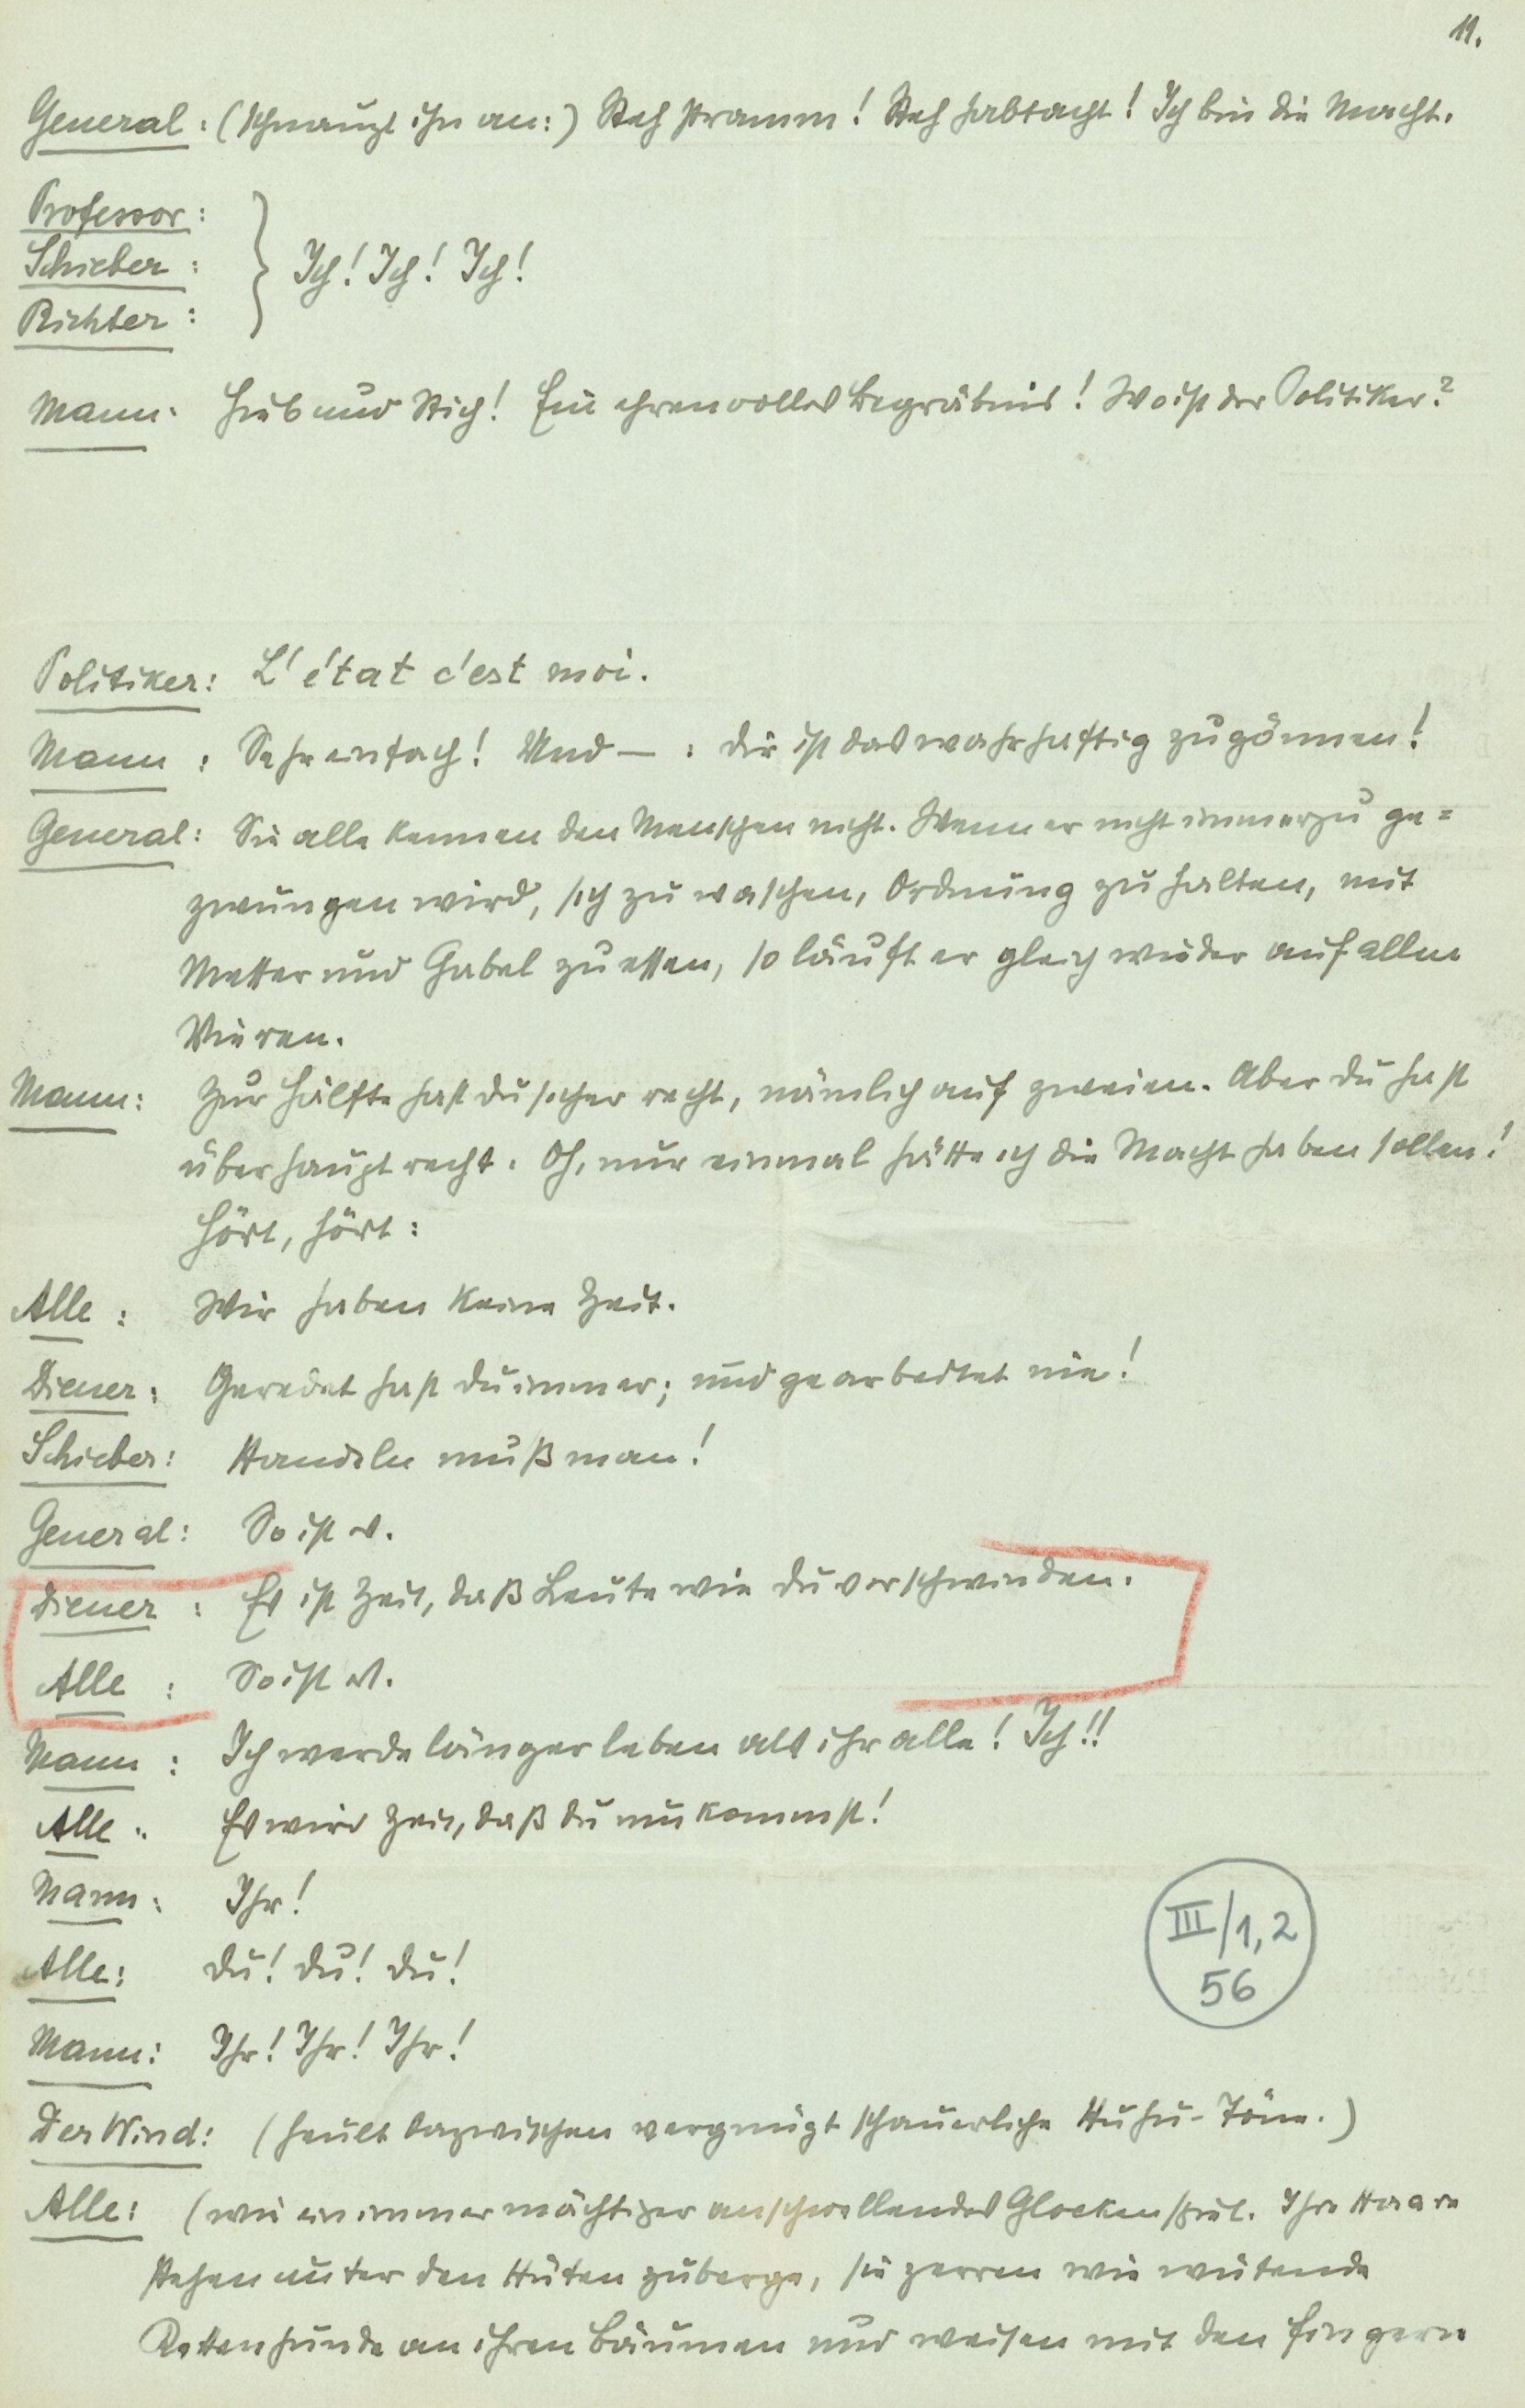 11.
General: (schnauzt ihn an:) Steh stramm! Steh habtacht! Ich bin die Macht.
Professor:
Schieber:
Richter:
Ich! Ich! Ich!
Mann: Hieb und Stich! Ein ehrenvolles Begräbnis! Wo ist der Politiker?
Politiker: L'état c'est moi.
Mann: Sehr einfach! Und — : dir ist das wahrhaftig zu gönnen!
General: Sie alle kennen den Menschen nicht. Wenn er nicht immerzu ge=
zwungen wird, sich zu waschen, Ordnung zu halten, mit
Messer und Gabel zu essen, so läuft er gleich wieder auf allen
Vieren.
Mann: Zur Hälfte hast du sicher recht, nämlich auf zweien. Aber du hast
überhaupt recht. Oh, nur einmal hätte ich die Macht haben sollen!
Hört, hört:
Alle: Wir haben keine Zeit.
Diener: Geredet hast du immer; und gearbeitet nie!
Schieber: Handeln muß man!
General: So ist es.
Diener: Es ist Zeit, daß Leute wie du verschwinden.
Alle: So ist es.
Mann: Ich werde länger leben als ihr alle! Ich!!
Alle: Es wird Zeit, daß du umkommst!
Mann: Ihr!
Alle: Du! Du! Du!
III/1,2
56
Mann: Ihr! Ihr! Ihr!
Der Wind: (heult dazwischen vergnügt schauerliche Huhu-Töne.)
Alle: (wie ein immer mächtiger anschwellendes Glockenspiel. Ihre Haare
stehen unter den Hüten zuberge, sie zerren wie wütende
Kettenhunde an ihren Bäumen und weisen mit den Fingern